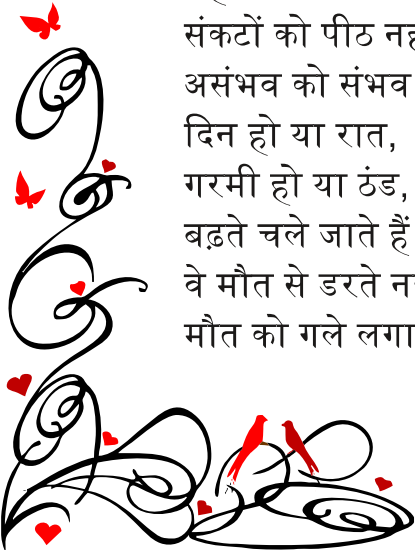 संकटों को पीठ
असंभव को संभव
दिन हो या रात,
गरमी हो या ठंड,
बढ़ते चले जाते हैं
वे मौत से डरते
मौत को गले लगा